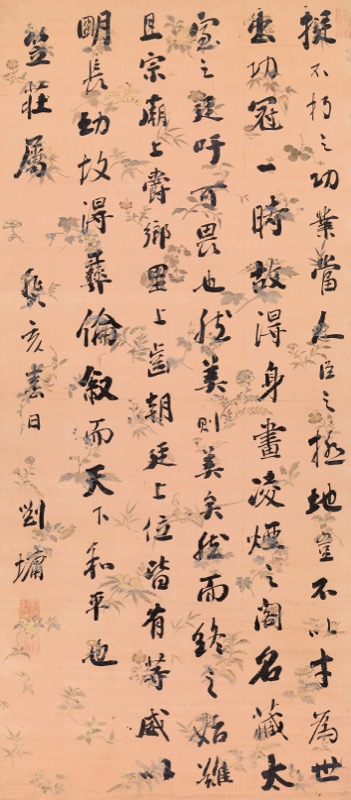 擬不朽之功業當人臣之極地豈不以才為世
出功冠一時故得身畫凌煙之閣名藏太
室之廷吁可畏也然美則美矣然而終之始難
且宗廟上爵鄉里上齒朝廷上位皆有等威以
明長幼故得彝倫叙而天下和平也
笠莊屬 癸亥春日 劉墉